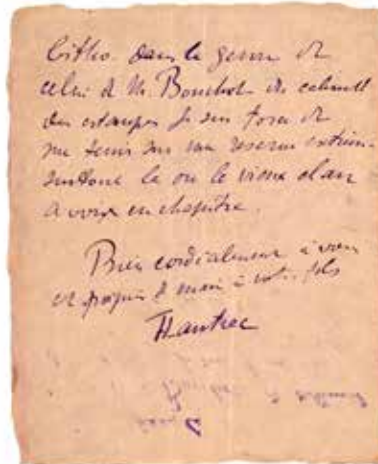 litho. dans le genre de
celui de M. Bouchot du cabinet
des estampes je suis forcé de
me tenir sur une réserve extrême
surtout là où le vieux clan
a voix en chapitre.
Bien cordialement à vous
et poignée de main à votre fils
HLautrec